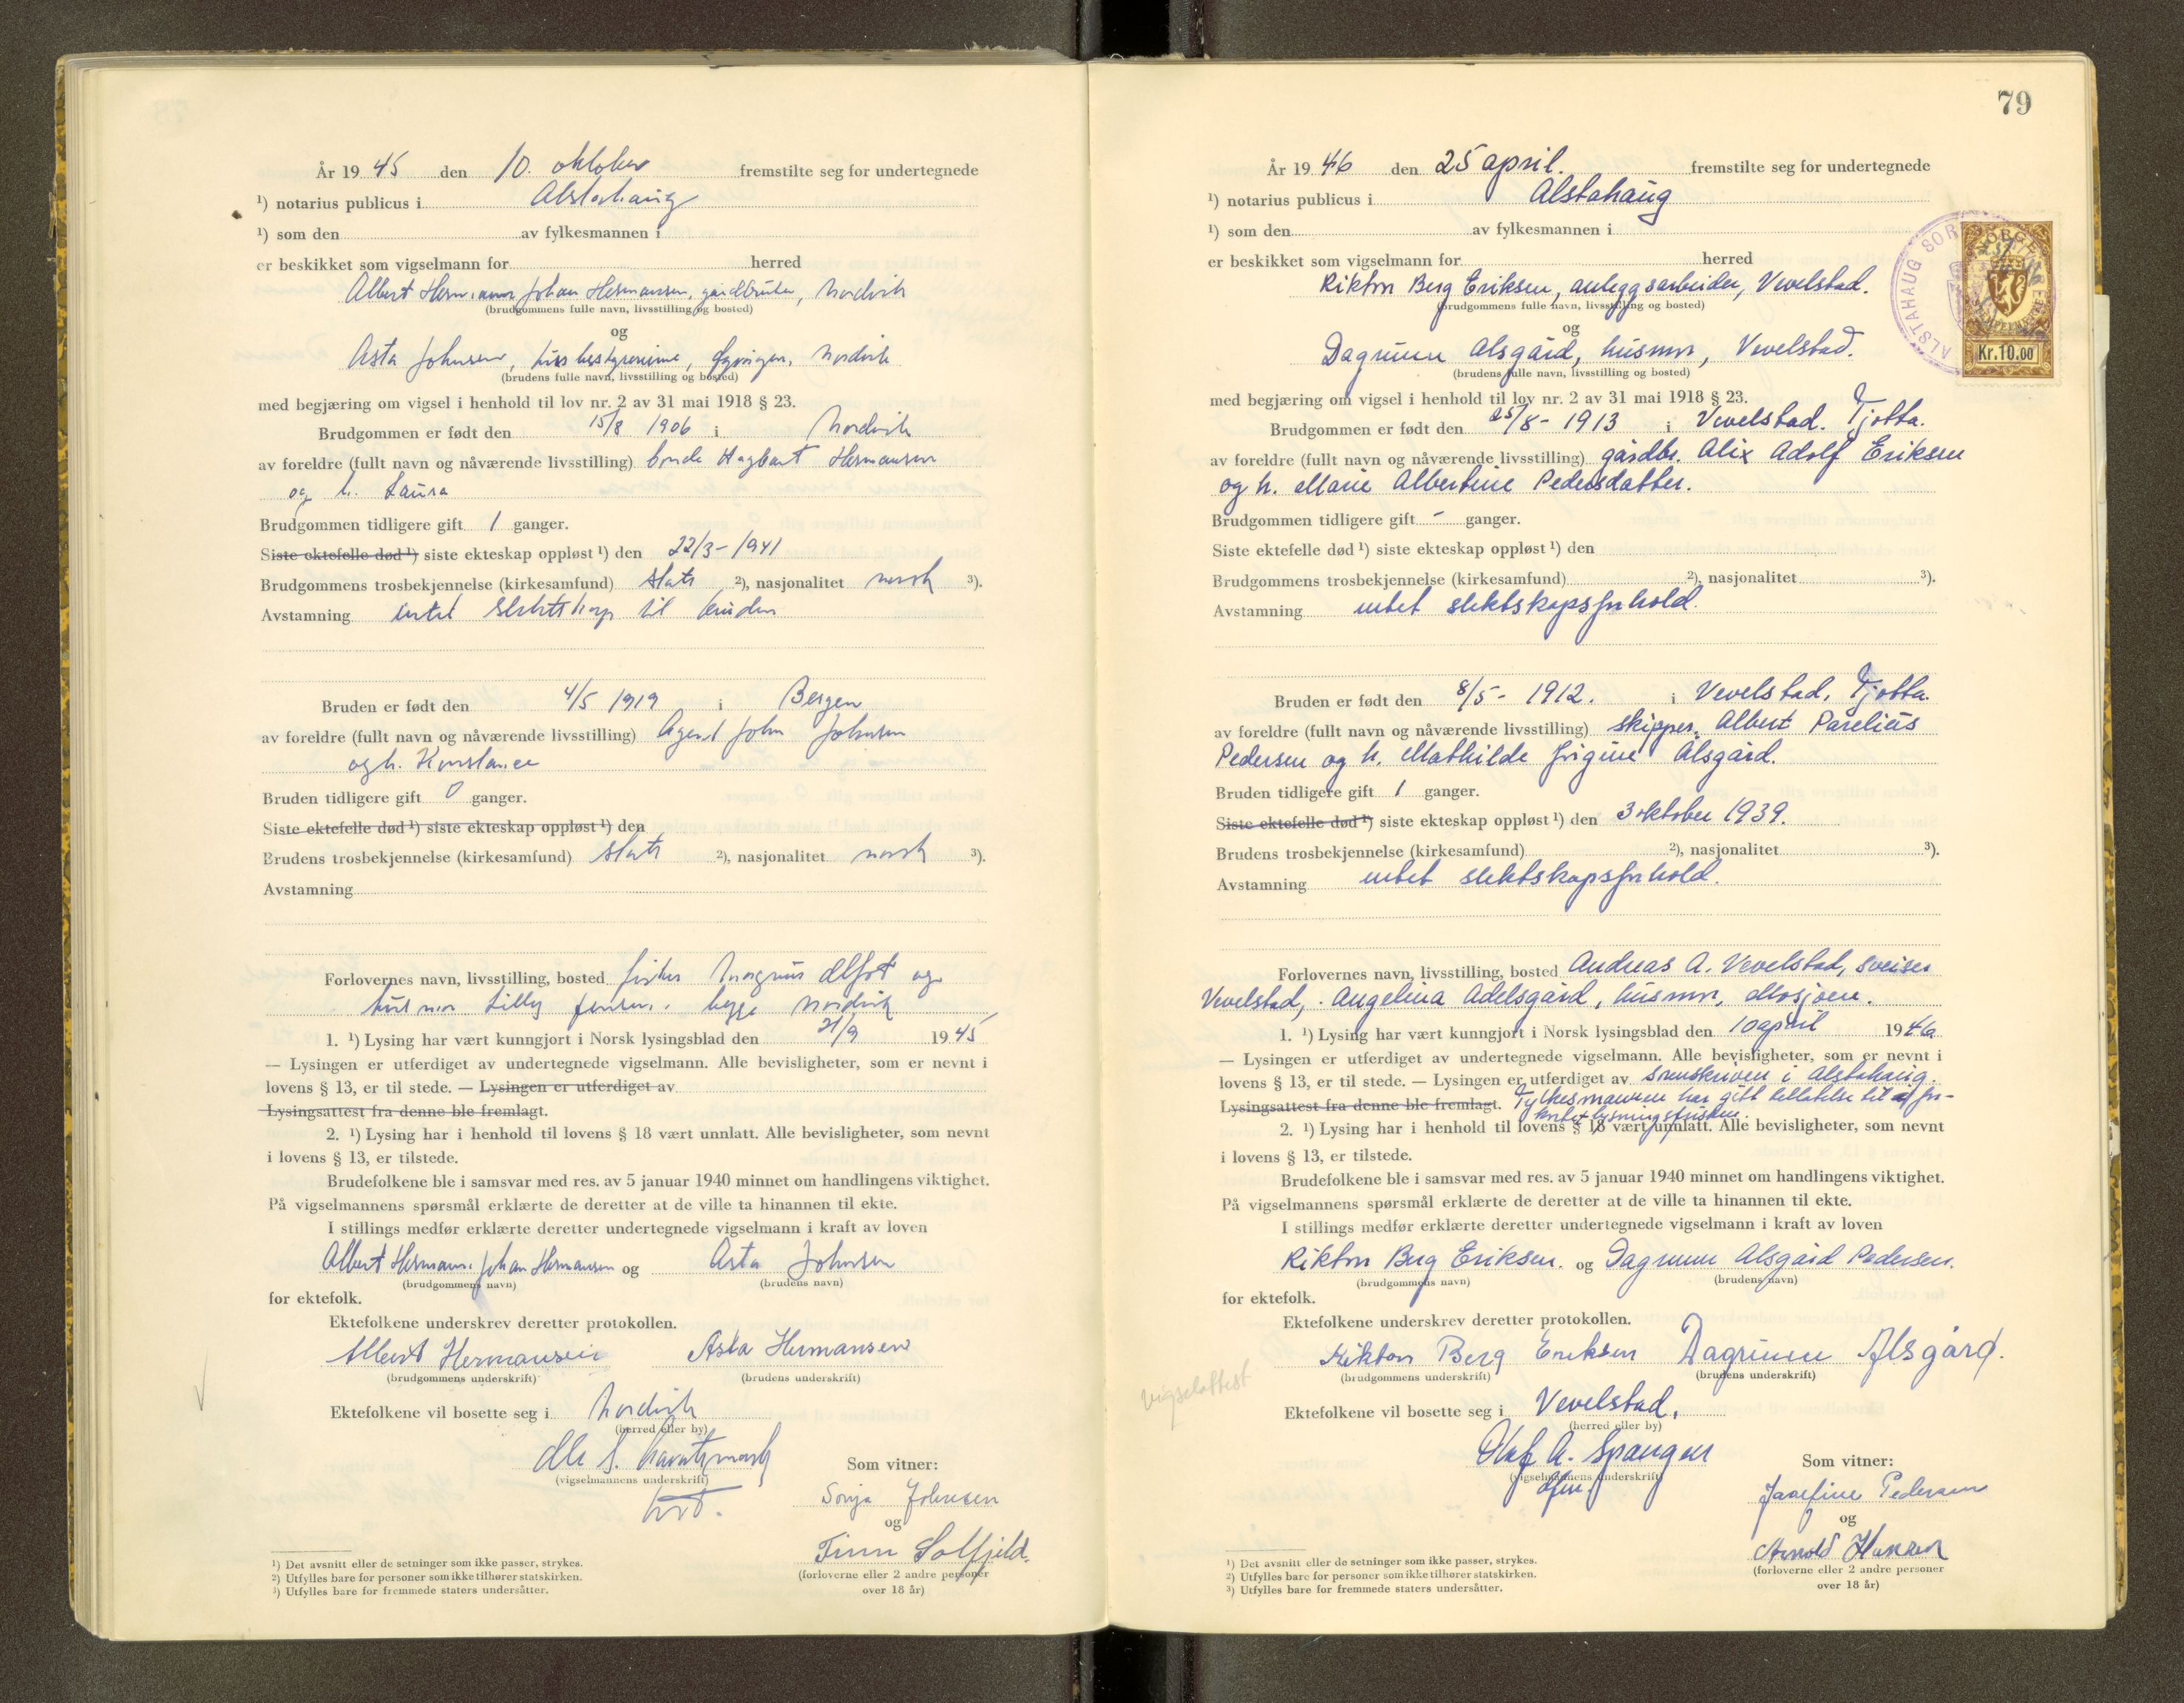 År 19 45 den 10. oktober fremstilte seg for undertegnede
¹) notarius publicus i Alstahaug
¹) som den av fylkesmannen i
er beskikket som vigselmann for herred
Albert Hermann Johan Hermansen, gårdbruker, Nordvik
(brudgommens fulle navn, livsstilling og bosted)
og
Asta Johnsen, husbestyrerinne, Nordvik
(brudens fulle navn, livsstilling og bosted)
med begjæring om vigsel i henhold til lov nr. 2 av 31 mai 1918 § 23.
Brudgommen er født den 15/8 1906 i Nordvik
av foreldre (fullt navn og nåværende livsstilling) bonde Hagbart Hermansen
og h. Laura
Brudgommen tidligere gift 1 ganger.
Siste ektefelle død ¹) siste ekteskap oppløst ¹) den 22/3 - 1941
Brudgommens trosbekjennelse (kirkesamfund) stats ²), nasjonalitet norsk ³).
Avstamning intet slektskap til bruden
Bruden er født den 4/5 1919 i Bergen
av foreldre (fullt navn og nåværende livsstilling) Agent John Johnsen
og h. Konstance
Bruden tidligere gift 0 ganger.
Siste ektefelle død ¹) siste ekteskap oppløst ¹) den
Brudens trosbekjennelse (kirkesamfund) stats ²), nasjonalitet norsk ³).
Avstamning
Forlovernes navn, livsstilling, bosted fisker Magnus og
husmor Lilly Jensen, begge Nordvik
1. ¹) Lysing har vært kunngjort i Norsk lysingsblad den 21/9 19 45
— Lysingen er utferdiget av undertegnede vigselmann. Alle bevisligheter, som er nevnt i
lovens § 13, er til stede. — Lysingen er utferdiget av
Lysingsattest fra denne ble fremlagt.
2. ¹) Lysing har i henhold til lovens § 18 vært unnlatt. Alle bevisligheter, som nevnt
i lovens § 13, er tilstede.
Brudefolkene ble i samsvar med res. av 5 januar 1940 minnet om handlingens viktighet.
På vigselmannens spørsmål erklærte de deretter at de ville ta hinannen til ekte.
I stillings medfør erklærte deretter undertegnede vigselmann i kraft av loven
Albert Hermann Johan Hermansen og Asta Johnsen
(brudgommens navn) (brudens navn)
for ektefolk.
Ektefolkene underskrev deretter protokollen.
Albert Hermansen Asta Hermansen
(brudgommens underskrift) (brudens underskrift)
Ektefolkene vil bosette seg i Nordvik
(herred eller by)
(vigselmannens underskrift)
Som vitner:
Sonja Johnsen
og
Finn Solfjeld.
(forloverne eller 2 andre personer
over 18 år)
¹) Det avsnitt eller de setninger som ikke passer, strykes.
²) Utfylles bare for personer som ikke tilhører statskirken.
³) Utfylles bare for fremmede staters undersåtter.
79
År 19 46 den 25 april. fremstilte seg for undertegnede
¹) notarius publicus i Alstahaug
¹) som den av fylkesmannen i
er beskikket som vigselmann for herred
Rikton Berg Eriksen, anleggsarbeider, Vevelstad.
(brudgommens fulle navn, livsstilling og bosted)
og
Dagrunn Alsgård, husmor, Vevelstad.
(brudens fulle navn, livsstilling og bosted)
ALSTAHAUG SOR
NORGE
Kr.10.00
med begjæring om vigsel i henhold til lov nr. 2 av 31 mai 1918 § 23.
Brudgommen er født den 25/8 - 1913 i Vevelstad. Tjøtta.
av foreldre (fullt navn og nåværende livsstilling) gårdbr. Alix Adolf Eriksen
og h. Marie Albertine Pedersdatter.
Brudgommen tidligere gift - ganger.
Siste ektefelle død ¹) siste ekteskap oppløst ¹) den
Brudgommens trosbekjennelse (kirkesamfund) ²), nasjonalitet ³).
Avstamning intet slektskapsforhold.
Bruden er født den 8/5 - 1912. i Vevelstad, Tjøtta.
av foreldre (fullt navn og nåværende livsstilling) skipper, Albert Parelius
Pedersen og h. Mathilde Jrigine Alsgård.
Bruden tidligere gift 1 ganger.
Siste ektefelle død ¹) siste ekteskap oppløst ¹) den 3 oktober 1939.
Brudens trosbekjennelse (kirkesamfund) ²), nasjonalitet ³).
Avstamning intet slektskapsforhold.
Forlovernes navn, livsstilling, bosted Andreas A. Vevelstad, sveiser
Vevelstad, . Angelina Adelsgård, husmor, Mosjøen.
1. ¹) Lysing har vært kunngjort i Norsk lysingsblad den 10 april 19 46
— Lysingen er utferdiget av undertegnede vigselmann. Alle bevisligheter, som er nevnt i
lovens § 13, er til stede. — Lysingen er utferdiget av sorenskriveren i Alstahaug.
Lysingsattest fra denne ble fremlagt. Fylkesmannen har gitt tillatelse til for-
kortet lysningsfristen.
2. ¹) Lysing har i henhold til lovens § 18 vært unnlatt. Alle bevisligheter, som nevnt
i lovens § 13, er tilstede.
Brudefolkene ble i samsvar med res. av 5 januar 1940 minnet om handlingens viktighet.
På vigselmannens spørsmål erklærte de deretter at de ville ta hinannen til ekte.
I stillings medfør erklærte deretter undertegnede vigselmann i kraft av loven
Rikton Berg Eriksen. og Dagrunn Alsgård Pedersen.
(brudgommens navn) (brudens navn)
for ektefolk.
Ektefolkene underskrev deretter protokollen.
Rikton Berg Eriksen Dagrunn Alsgård.
(brudgommens underskrift) (brudens underskrift)
vigselattest
Ektefolkene vil bosette seg i Vevelstad.
(herred eller by)
Olaf A. Spangen
(vigselmannens underskrift)
Som vitner:
Josefine Pedersen
og
Arnold Hansen
(forloverne eller 2 andre personer
over 18 år)
¹) Det avsnitt eller de setninger som ikke passer, strykes.
²) Utfylles bare for personer som ikke tilhører statskirken.
³) Utfylles bare for fremmede staters undersåtter.